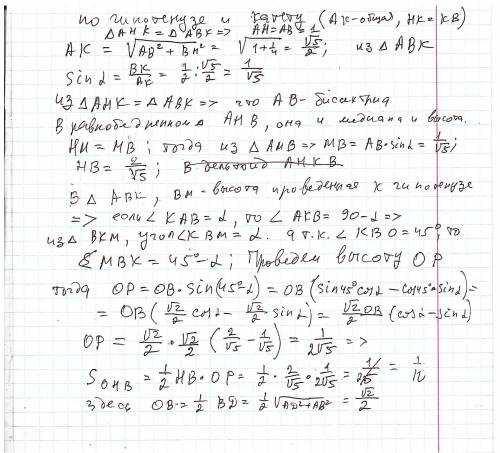 по гипотенузе и катету (AK-общая, HK=KB)
△AHK=△ABK=> AH=AB=1
AK=√AB²+BH²=√1+1/4=√5/2; из △ABK
Sin α=BK/AK=1/2:√5/2=1/√5
из △AHK=△ABK=> что AB-биссектриса
В равнобедренном △ AHB, она и медиана и высота.
HM=MB; тогда из △AMB=>MB=AB·sinα=1/√5;
HB=2/√5; В дельтоид AHKB
В △ ABK, BM-высота проведенная к гипотенузе
=> если ∠KAB=α, то ∠AKB=90-α=>
из △BKM, угол∠KBM=α. а т.к. ∠KBO=45°, то
∠MBK=45°-α; Проведем высоту OP
тогда OP=OB·sin(45°-α)=OB(sin45°cosα-cos45°sinα)=
=OB(√2/2 cosα-√2/2 sinα)=√2/2 OB(cosα-sinα)
OP=√2/2·√2/2(2/√5-1/√5)=1/2√5 =>
S OHB=1/2HB·OP=1/2·2/√5·1/2√5= =
здесь OB=1/2 BD=1/2√AD²+AB²=√2/2